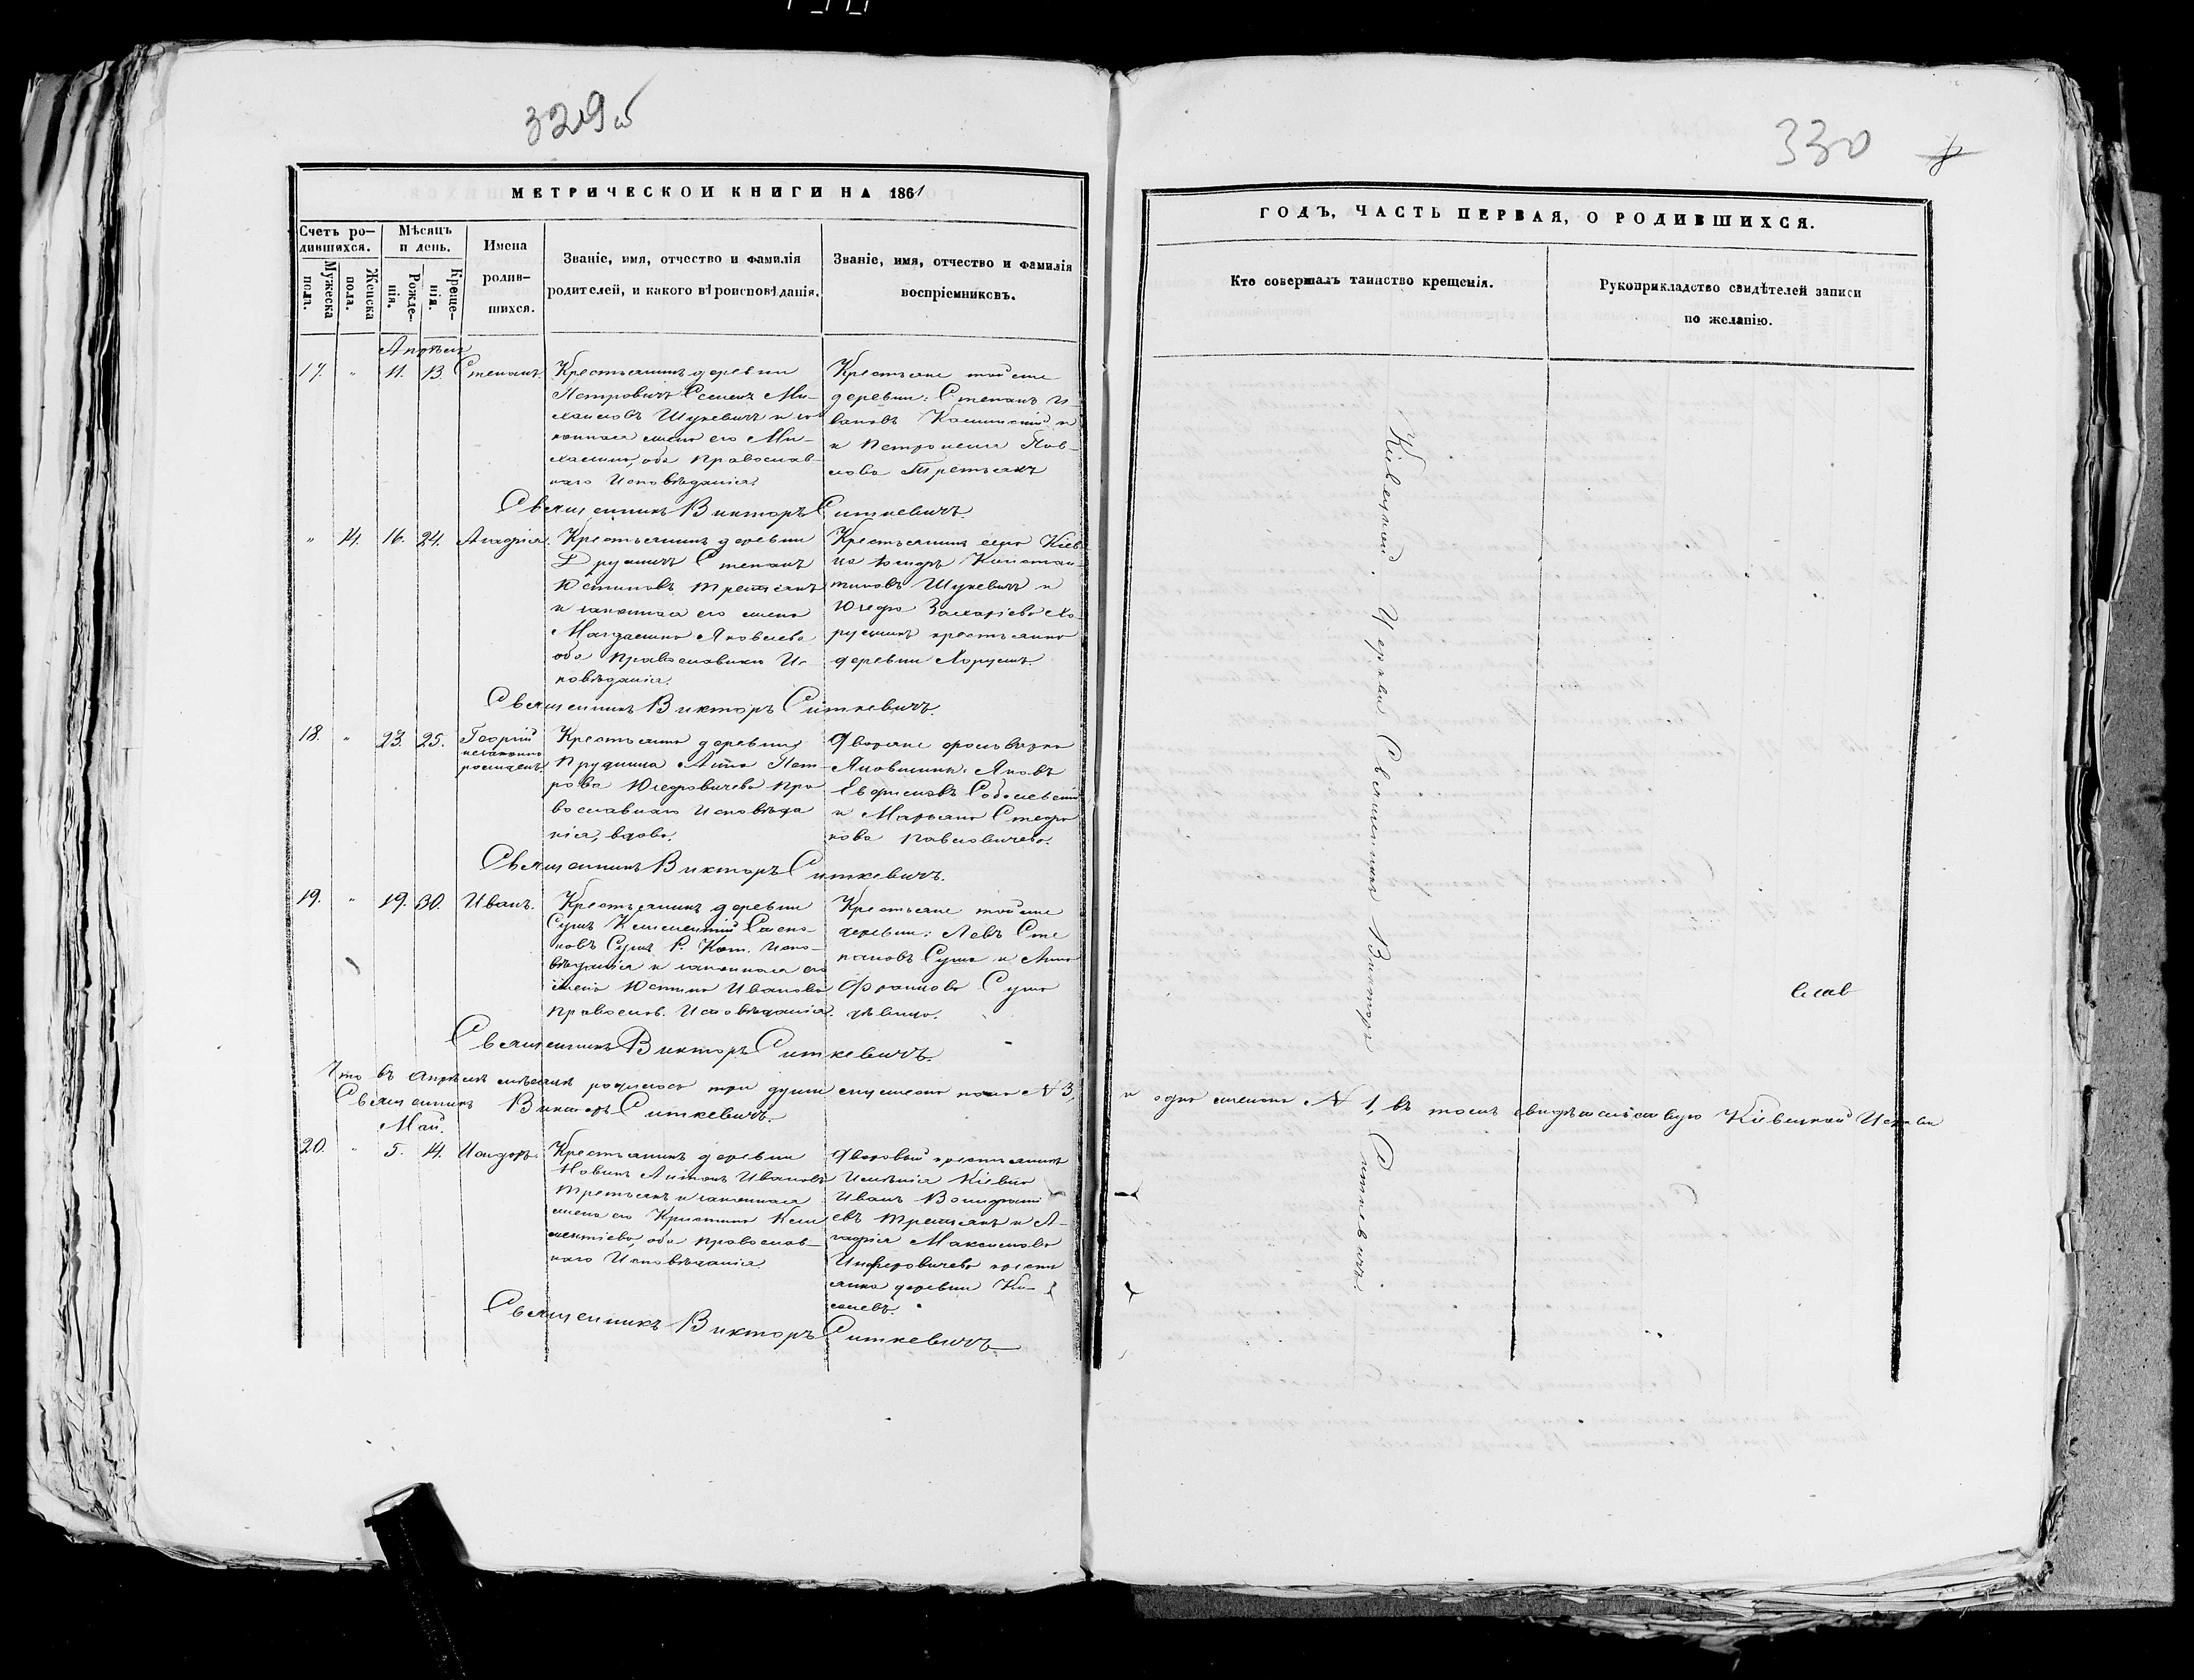 329 об
МЕТРИЧЕСКОЙ КНИГИ НА 1861
Счетъ ро-
дившихся.
Мужеска
пола.
Женска
пола.
Мѣсяцъ
и день.
Рожде-
нія.
Креще-
нія.
Имена
родив-
шихся.
Званіе, имя, отчество и фамилія
родителей, и какого вѣроисповѣданія.
Званіе, имя, отчество и фамилія
воспріемниковъ.
Апрѣль
17. " 11. 13. Степанъ.
Крестьянинъ деревни
Петровичъ Семенъ Ми-
хаиловъ Шукевичъ и за-
конная жена его Ми-
халина, оба Православ-
наго Исповѣданія.
Крестьяне той же
деревни: Степанъ И-
вановъ и
и Петронеля Пав-
лова Третьякъ
Священникъ Викторъ Ситкевичъ.
" 14. 16. 24. Агафія.
Крестьянинъ деревни
Степанъ
Юстиновъ Третьякъ
и законная его жена
Магдалина Яковлева
оба Православнаго Ис-
повѣданія.
Крестьянинъ села Кіев-
ца Константи-
новъ Шукевичъ и
Захаріева Хо-
ружикъ крестьянка
деревни Хоружи.
Священникъ Викторъ Ситкевичъ.
18. " 23. 25. Георгій
незаконно
рожденъ.
Крестьянка деревни
Прудища Анна Пет-
рова Пра-
вославнаго Исповѣда-
нія, вдова.
Дворяне фольварка
Яновщины: Яковъ
Соболевскій
и Марьяна Стефа-
нова Павловичева.
Священникъ Викторъ Ситкевичъ.
19. " 19. 30. Иванъ.
Крестьянинъ деревни
Сушъ Климентій
новъ Суша Р. Кат. Испо-
вѣданія и законная его
жена Юстина Иванова
Православ. Исповѣданія.
Крестьяне той же
деревни: Левъ Сте-
пановъ Суша и Анна
Францова Суша
дѣвица.
Священникъ Викторъ Ситкевичъ.
Что въ Апрѣлѣ мѣсяцѣ родилось три души мужеска пола № 3,
Священникъ Викторъ Ситкевичъ.
Май.
20. " 5. 14. Исидоръ.
Крестьянинъ деревни
Новинъ Антонъ Ивановъ
Третьякъ и законная
жена его Кристина Кли-
ментіева, оба Православ-
наго Исповѣданія.
Дворовый крестьянинъ
Имѣнія Кіевца
Иванъ
евъ Третьякъ и А-
гафія Максимова
крестья-
янка деревни Ки-
Священникъ Викторъ Ситкевичъ
330
ГОДЪ, ЧАСТЬ ПЕРВАЯ, О РОДИВШИХСЯ.
Кто совершалъ таинство крещенія.
Рукоприкладство свидѣтелей записи
по желанію.
Кіевецкой Церкви Священникъ Викторъ Ситкевичъ.
и одна женска № 1, въ томъ свидѣтельствую Кіевецкой Церкви